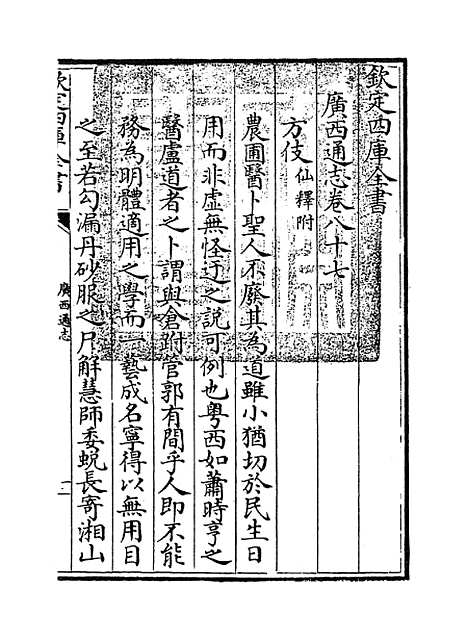 欽定四庫全書
廣西通志卷八十七
方伎仙釋附
農圃醫卜聖人不廢其為道雖小猶切於民生日
用而非虛無怪迂之說可例也粤西如蕭時亨之
醫盧道者之卜謂與倉跗管郭有間乎人即不能
務為明體適用之學而一藝成名寧得以無用目
之至若勾漏丹砂服之尸解慧師委蛻長寄湘山
欽定四庫全書
廣西通志